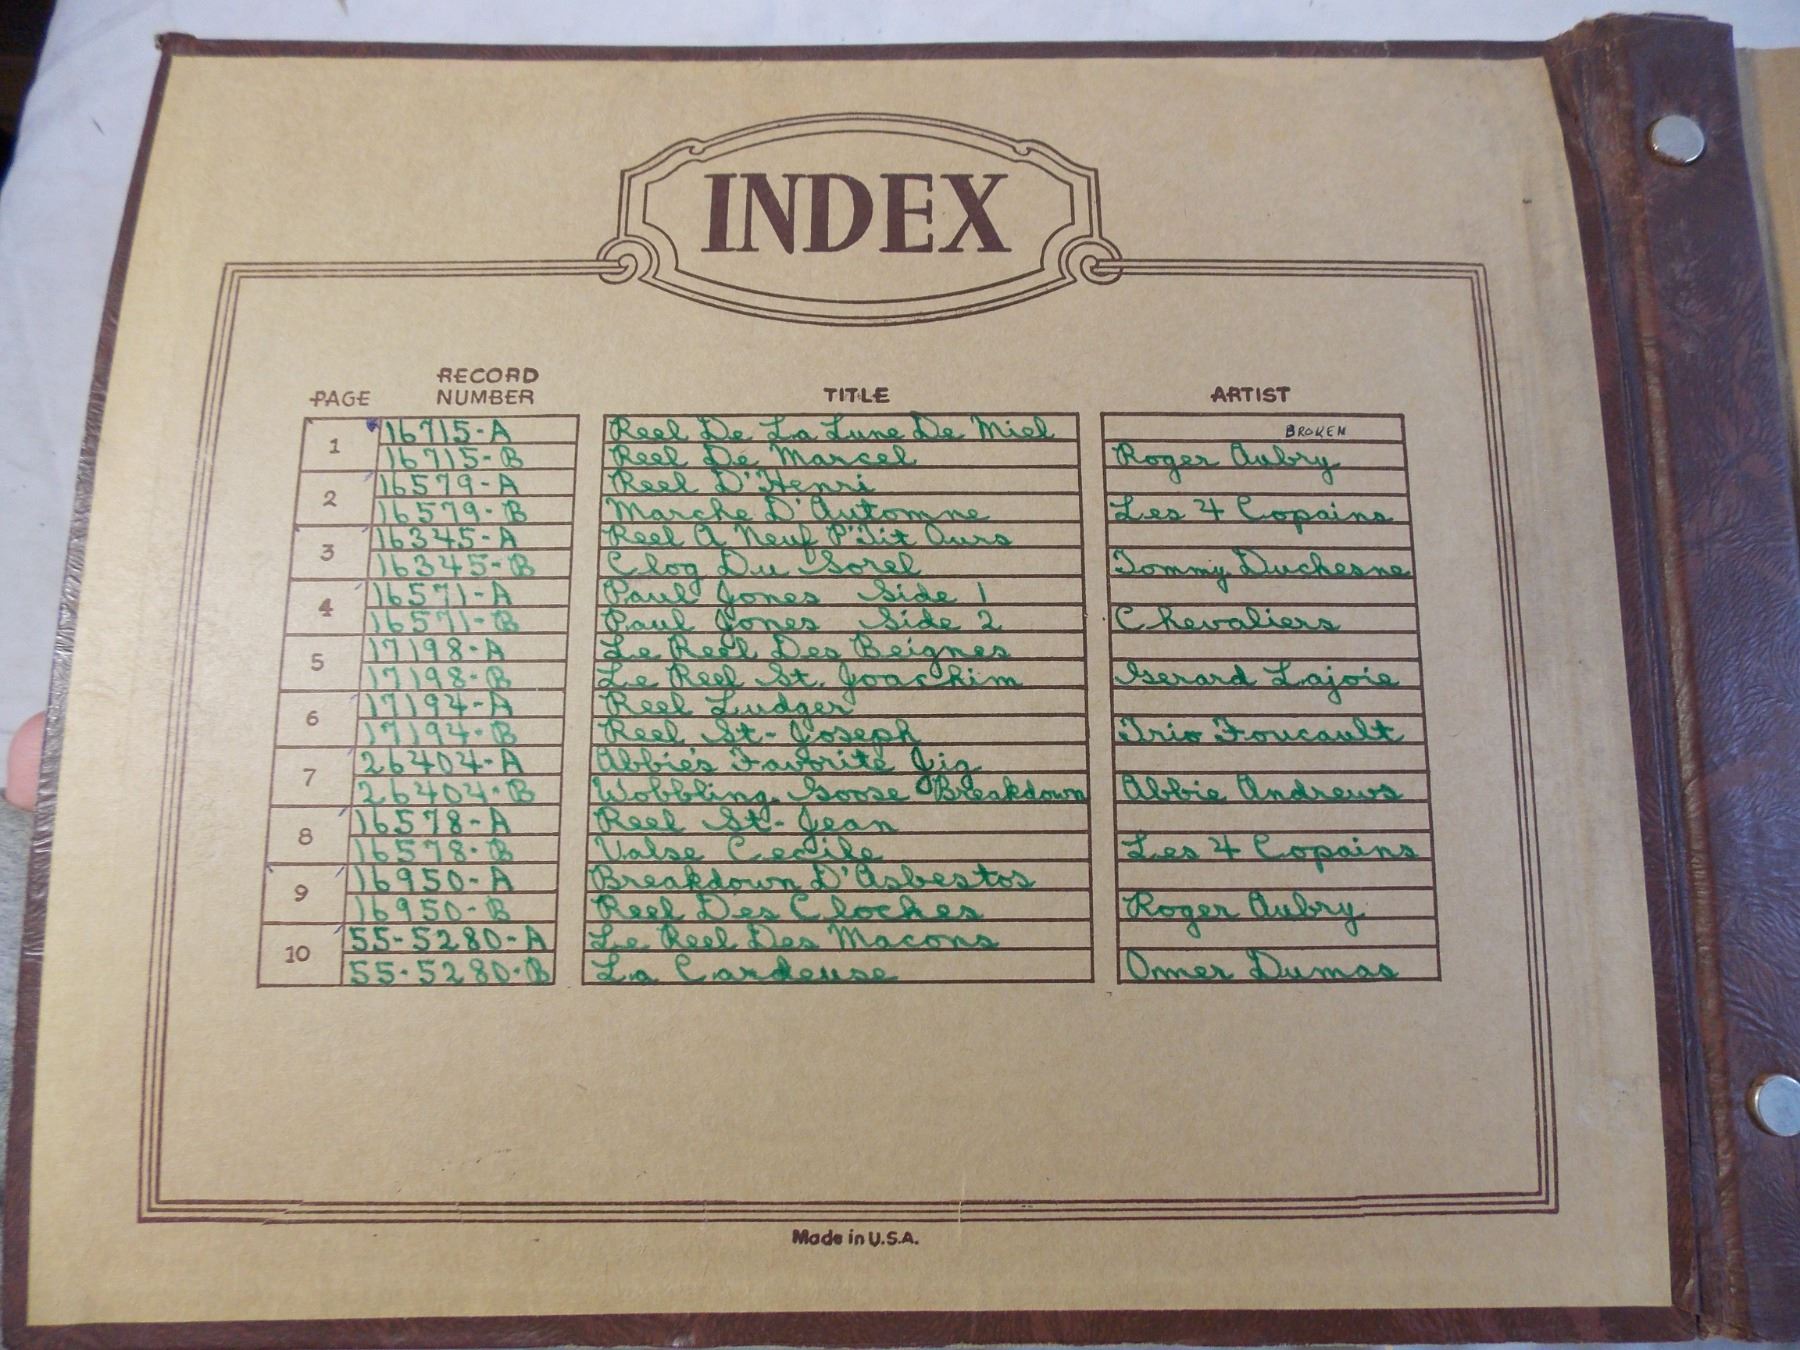 INDEX
PAGE RECORD NUMBER TITLE ARTIST
1 16715-A Reel De La Lune De Miel BROKEN
16715-B Reel De Marcel Roger Aubry
2 16579-A Reel D'Henri
16579-B Marche D'Automne Les 4 Copains
3 16345-A Reel A Neuf P'Tit Ours
16345-B Clog Du Sorel Tommy Duchesne
4 16571-A Paul Jones Side 1
16571-B Paul Jones Side 2 Chevaliers
5 17198-A Le Reel Des Beignes
17198-B Le Reel St. Joachim Gerard Lajoie
6 17194-A Reel Ludger
17194-B Reel St-Joseph Trio Foucault
7 26404-A Abbie's Favorite Jig
26404-B Wobbling Goose Breakdown Abbie Andrews
8 16578-A Reel St-Jean
16578-B Valse Cecile Les 4 Copains
9 16950-A Breakdown D'Asbestos
16950-B Reel Des Cloches Roger Aubry
10 55-5280-A Le Reel Des Macons
55-5280-B La Cardeuse Omer Dumas
Made in U.S.A.